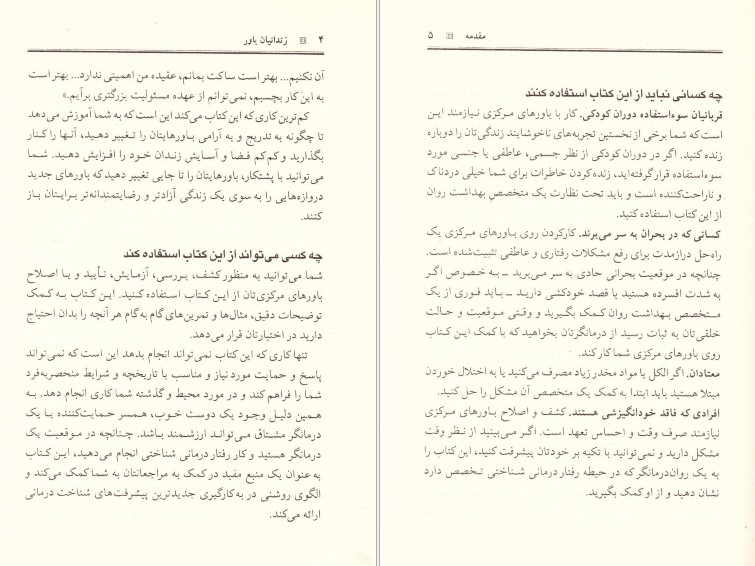 ۴ زندانیان باور
آن نکنیم... بهتر است ساکت بمانم، عقیده من اهمیتی ندارد... بهتر است
به این کار بچسبم، نمی‌توانم از عهده مسئولیت بزرگتری برآیم.»
کم‌ترین کاری که این کتاب می‌کند این است که به شما آموزش می‌دهد
تا چگونه به تدریج و به آرامی باورهایتان را تغییر دهید، آنها را کنار
بگذارید و کم‌کم فضا و آسایش زندان خود را افزایش دهید. شما
می‌توانید با پشتکار، باورهایتان را تا جایی تغییر دهید که باورهای جدید
دروازه‌هایی را به سوی یک زندگی آزادتر و رضایتمندانه‌تر برایتان باز
کنند.
چه کسی می‌تواند از این کتاب استفاده کند
شما می‌توانید به منظور کشف، بررسی، آزمایش، تأیید و یا اصلاح
باورهای مرکزی‌تان از این کتاب استفاده کنید. این کتاب به کمک
توضیحات دقیق، مثال‌ها و تمرین‌های گام به‌گام هر آنچه را بدان احتیاج
دارید در اختیارتان قرار می‌دهد.
تنها کاری که این کتاب نمی‌تواند انجام بدهد این است که نمی‌تواند
پاسخ و حمایت مورد نیاز و مناسب با تاریخچه و شرایط منحصربه‌فرد
شما را فراهم کند و در مورد محیط و گذشته شما کاری انجام دهد. به
همین دلیل وجود یک دوست خوب، همسر حمایت‌کننده یا یک
درمانگر مشتاق می‌تواند ارزشمند باشد. چنانچه در موقعیت یک
درمانگر هستید و کار رفتار درمانی شناختی انجام می‌دهید، این کتاب
به عنوان یک منبع مفید در کمک به مراجعانتان به شما کمک می‌کند و
الگوی روشنی در به‌کارگیری جدیدترین پیشرفت‌های شناخت درمانی
ارائه می‌کند.
مقدمه ۵
چه کسانی نباید از این کتاب استفاده کنند
قربانیان سوءاستفاده دوران کودکی. کار با باورهای مرکزی نیازمند این
است که شما برخی از نخستین تجربه‌های ناخوشایند زندگی‌تان را دوباره
زنده کنید. اگر در دوران کودکی از نظر جسمی، عاطفی یا جنسی مورد
سوءاستفاده قرار گرفته‌اید، زنده کردن خاطرات برای شما خیلی دردناک
و ناراحت‌کننده است و باید تحت نظارت یک متخصص بهداشت روان
از این کتاب استفاده کنید.
کسانی که در بحران به سر می‌برند. کارکردن روی باورهای مرکزی یک
راه‌حل درازمدت برای رفع مشکلات رفتاری و عاطفی تثبیت‌شده است.
چنانچه در موقعیت بحرانی حادی به سر می‌برید ــ به خصوص اگر
به شدت افسرده هستید یا قصد خودکشی دارید ــ باید فوری از یک
متخصص بهداشت روان کمک بگیرید و وقتی موقعیت و حالت
خلقی‌تان به ثبات رسید از درمانگرتان بخواهید که با کمک این کتاب
روی باورهای مرکزی شما کار کند.
معتادان. اگر الکل یا مواد مخدر زیاد مصرف می‌کنید یا به اختلال خوردن
مبتلا هستید باید ابتدا به کمک یک متخصص آن مشکل را حل کنید.
افرادی که فاقد خودانگیزشی هستند. کشف و اصلاح باورهای مرکزی
نیازمند صرف وقت و احساس تعهد است. اگر می‌بینید از نظر وقت
مشکل دارید و نمی‌توانید با تکیه بر خودتان پیشرفت کنید، این کتاب را
به یک روان‌درمانگر که در حیطه رفتار درمانی شناختی تخصص دارد
نشان دهید و از او کمک بگیرید.